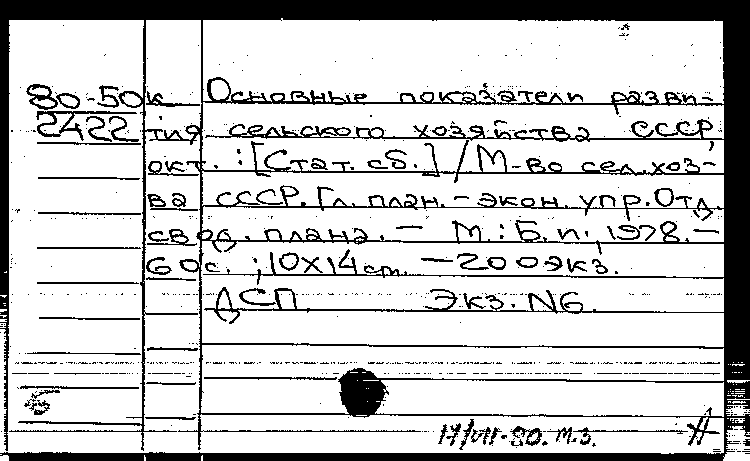 80-50к Основные показатели разви-
2422 тия сельского хозяйства СССР,
окт. : [Стат. сб.] / М-во сел. хоз-
ва СССР. Гл. план.-экон. упр. Отд.
свод. плана. — М. : Б. и., 1978. —
60 с. ; 10х14 cm. — 200 экз.
ДСП. Экз. N6.
17/VII-80. М.З.